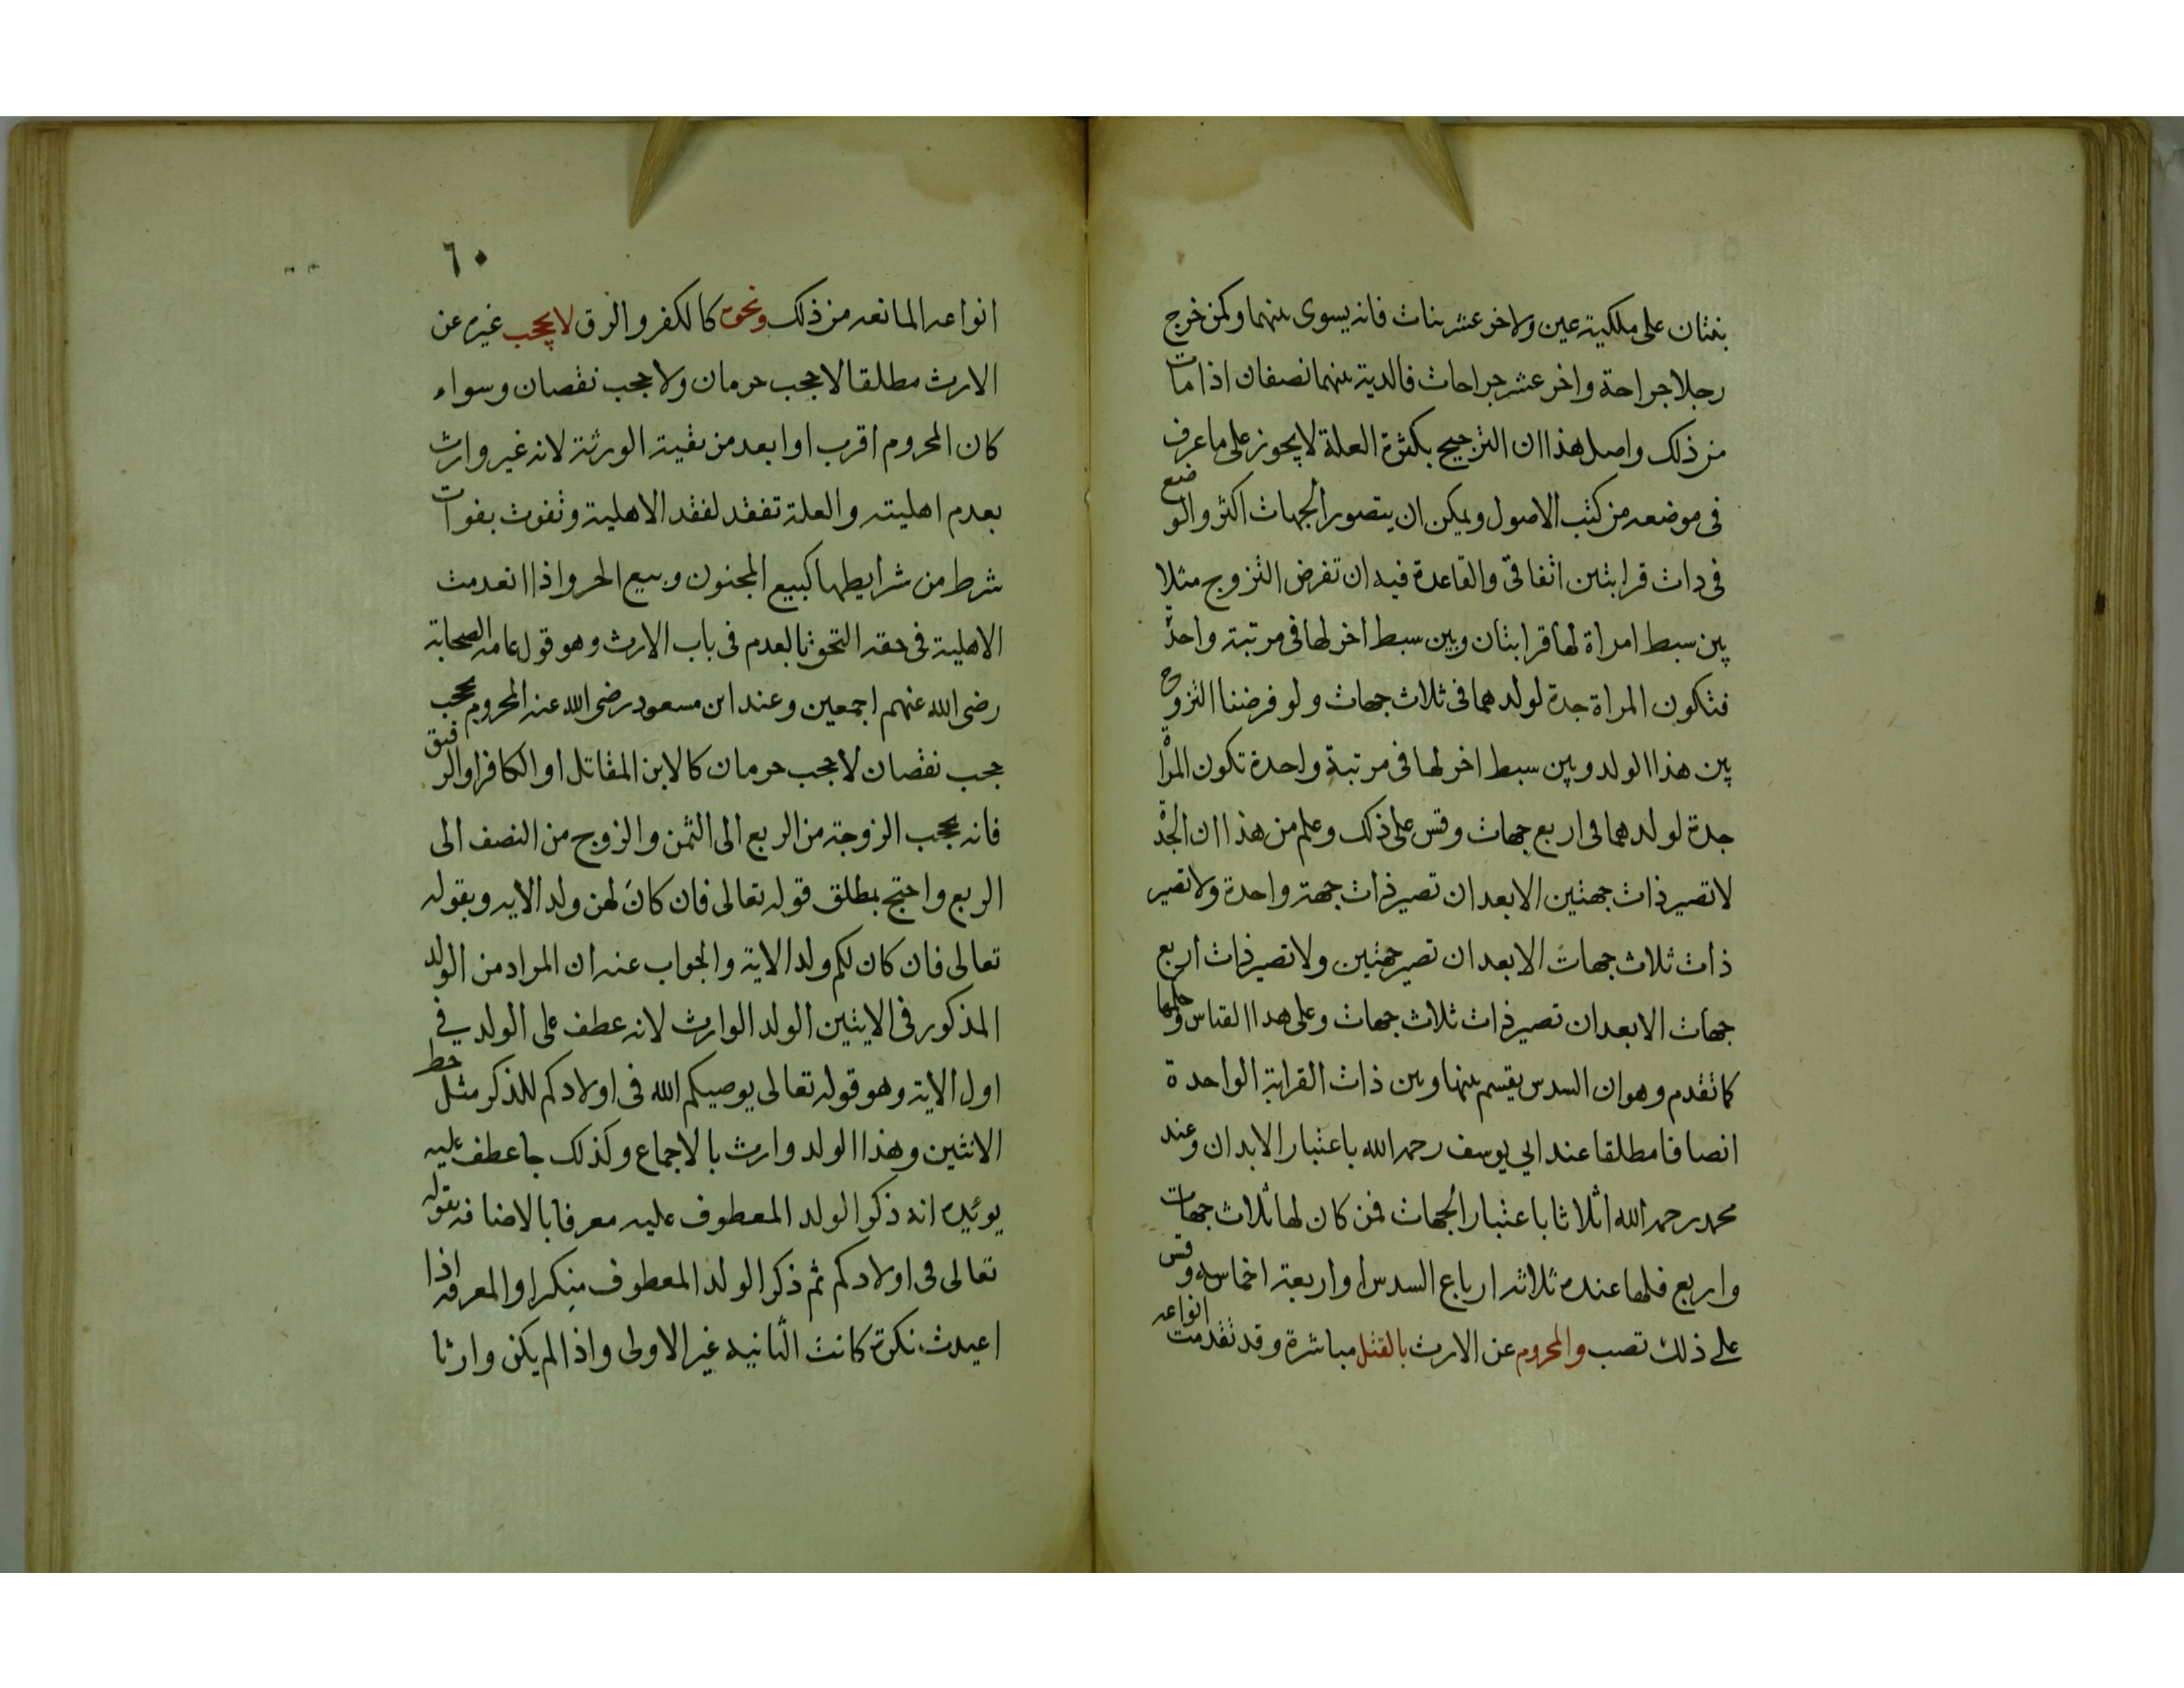 بنتان على ملكية عين ولاخر عشر بنات فانه يسوى بينهما وكمن خرج
رجلا جراحة واخر عشر جراحات فالدية بينهما نصفان اذا مات
من ذلك واصل هذا ان الترجيح بكثرة العلة لا يجوز على ما عرف
فى موضعه من كتب الاصول ويمكن ان يتصور الجهات اكثر والوضع
فى ذات قرابتين اتفاقى والقاعدة فيه ان تفرض التزوج مثلا
بين سبط امراة لها قرابتان وبين سبط اخر لها فى مرتبة واحدة
فتكون المراة جدة لولدهما فى ثلاث جهات ولو فرضنا التزوج
بين هذا الولد وبين سبط اخر لها فى مرتبة واحدة تكون المراة
جدة لولدهما فى اربع جهات وقس على ذلك وعلم من هذا ان الجدة
لا تصير ذات جهتين الا بعد ان تصير ذات جهة واحدة ولا تصير
ذات ثلاث جهات الا بعد ان تصير جهتين ولا تصير ذات اربع
جهات الا بعد ان تصير ذات ثلاث جهات وعلى هدا القياس وحكمها
كما تقدم وهو ان السدس يقسم بينها وبين ذات القرابة الواحدة
انصافا مطلقا عند ابي يوسف رحمه الله باعتبار الابدان وعند
محمد رحمه الله اثلاثا باعتبار الجهات فمن كان لها ثلاث جهات
واربع فلها عنده ثلاثه ارباع السدس او اربعة اخماسه وقس
على ذلك تصب والمحروم عن الارث بالقتل مباشرة وقد تقدمت انواعه
٦٠
انواعه المانعه من ذلك ونحوه كالكفر والرق لا يحجب غيره عن
الارث مطلقا لا حجب حرمان ولا حجب نقصان وسواء
كان المحروم اقرب او ابعد من بقية الورثة لانه غير وارث
بعدم اهليته والعلة تفقد لفقد الاهلية وتفوت بفوات
شرط من شرايطها كبيع المجنون وبيع الحر واذا انعدمت
الاهلية فى حقه التحق بالعدم فى باب الارث وهو قول عامه الصحابة
رضى الله عنهم اجمعين وعند ابن مسعود رضى الله عنه المحروم يحجب
حجب نقصان لا حجب حرمان كالابن المقاتل او الكافر او الرقيق
فانه يحجب الزوجة من الربع الى الثمن والزوج من النصف الى
الربع واحتج بمطلق قوله تعالى فان كان لهن ولد الايه وبقوله
تعالى فان كان لكم ولد الاية والجواب عنه ان المراد من الولد
المذكور فى الايتين الولد الوارث لانه عطف على الولد في
اول الاية وهو قوله تعالى يوصيكم الله فى اولادكم للذكر مثل حظ
الانثيين وهذا الولد وارث بالاجماع وكذلك ما عطف عليه
يوئيده انه ذكر الولد المعطوف عليه معرفا بالاضافه بقوله
تعالى فى اولادكم ثم ذكر الولد المعطوف منكرا والمعرفه اذا
اعيدت نكرة كانت الثانيه غير الاولى واذا لم يكن وارثا